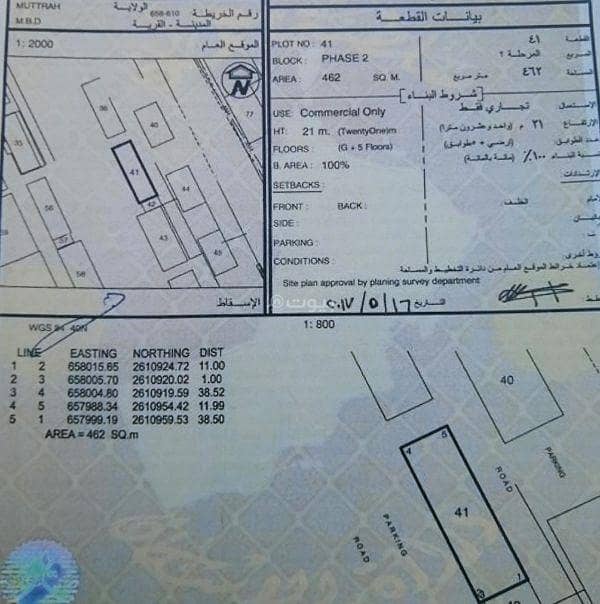 MUTTRAH
الولاية
رقم الخريطة 658-610
M.B.D
المدينة - القرية
1: 2000
الموقع العام
N
36
40
77
35
41
44
42
56
43
45
37
58
الإسقاط
WGS 84 40N
بيانات القطعة
PLOT NO : 41
٤١
القطعة
BLOCK : PHASE 2
المرحلة ٢
المربع
AREA : 462 SQ. M.
٤٦٢ متر مربع
المساحة
شروط البناء
USE: Commercial Only
تجاري فقط
الاستعمال
HT: 21 m. (TwentyOne)m
٢١ م (واحد وعشرون مترا)
الإرتفاع
FLOORS : (G + 5 Floors)
(أرضي + ٥طوابق)
عدد الطوابق
B. AREA : 100%
١٠٠٪ (مائة بالمائة)
نسبة البناء
SETBACKS :
الإرتدادات
FRONT : BACK :
الخلف
SIDE :
PARKING :
CONDITIONS :
شروط أخرى
إعتماد خرائط الموقع العام من دائرة التخطيط والمساحة
Site plan approval by planing survey department
٢٠١٧/٥/١٦
التاريخ
بيوت
1: 800
LINE EASTING NORTHING DIST
1 2 658015.65 2610924.72 11.00
2 3 658005.70 2610920.02 1.00
3 4 658004.80 2610919.59 38.52
4 5 657988.34 2610954.42 11.99
5 1 657999.19 2610959.53 38.50
AREA = 462 SQ.m
40
5
4
41
ROAD
PARKING
PARKING
ROAD
1